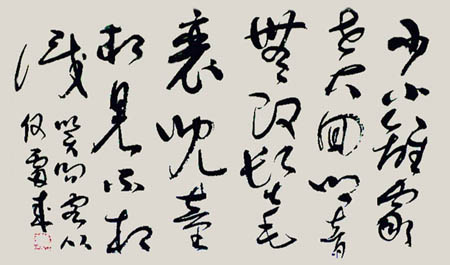 少小離家
老大回鄉音
無改鬢毛
衰兒童
相見不相
識
笑問客從
何處來